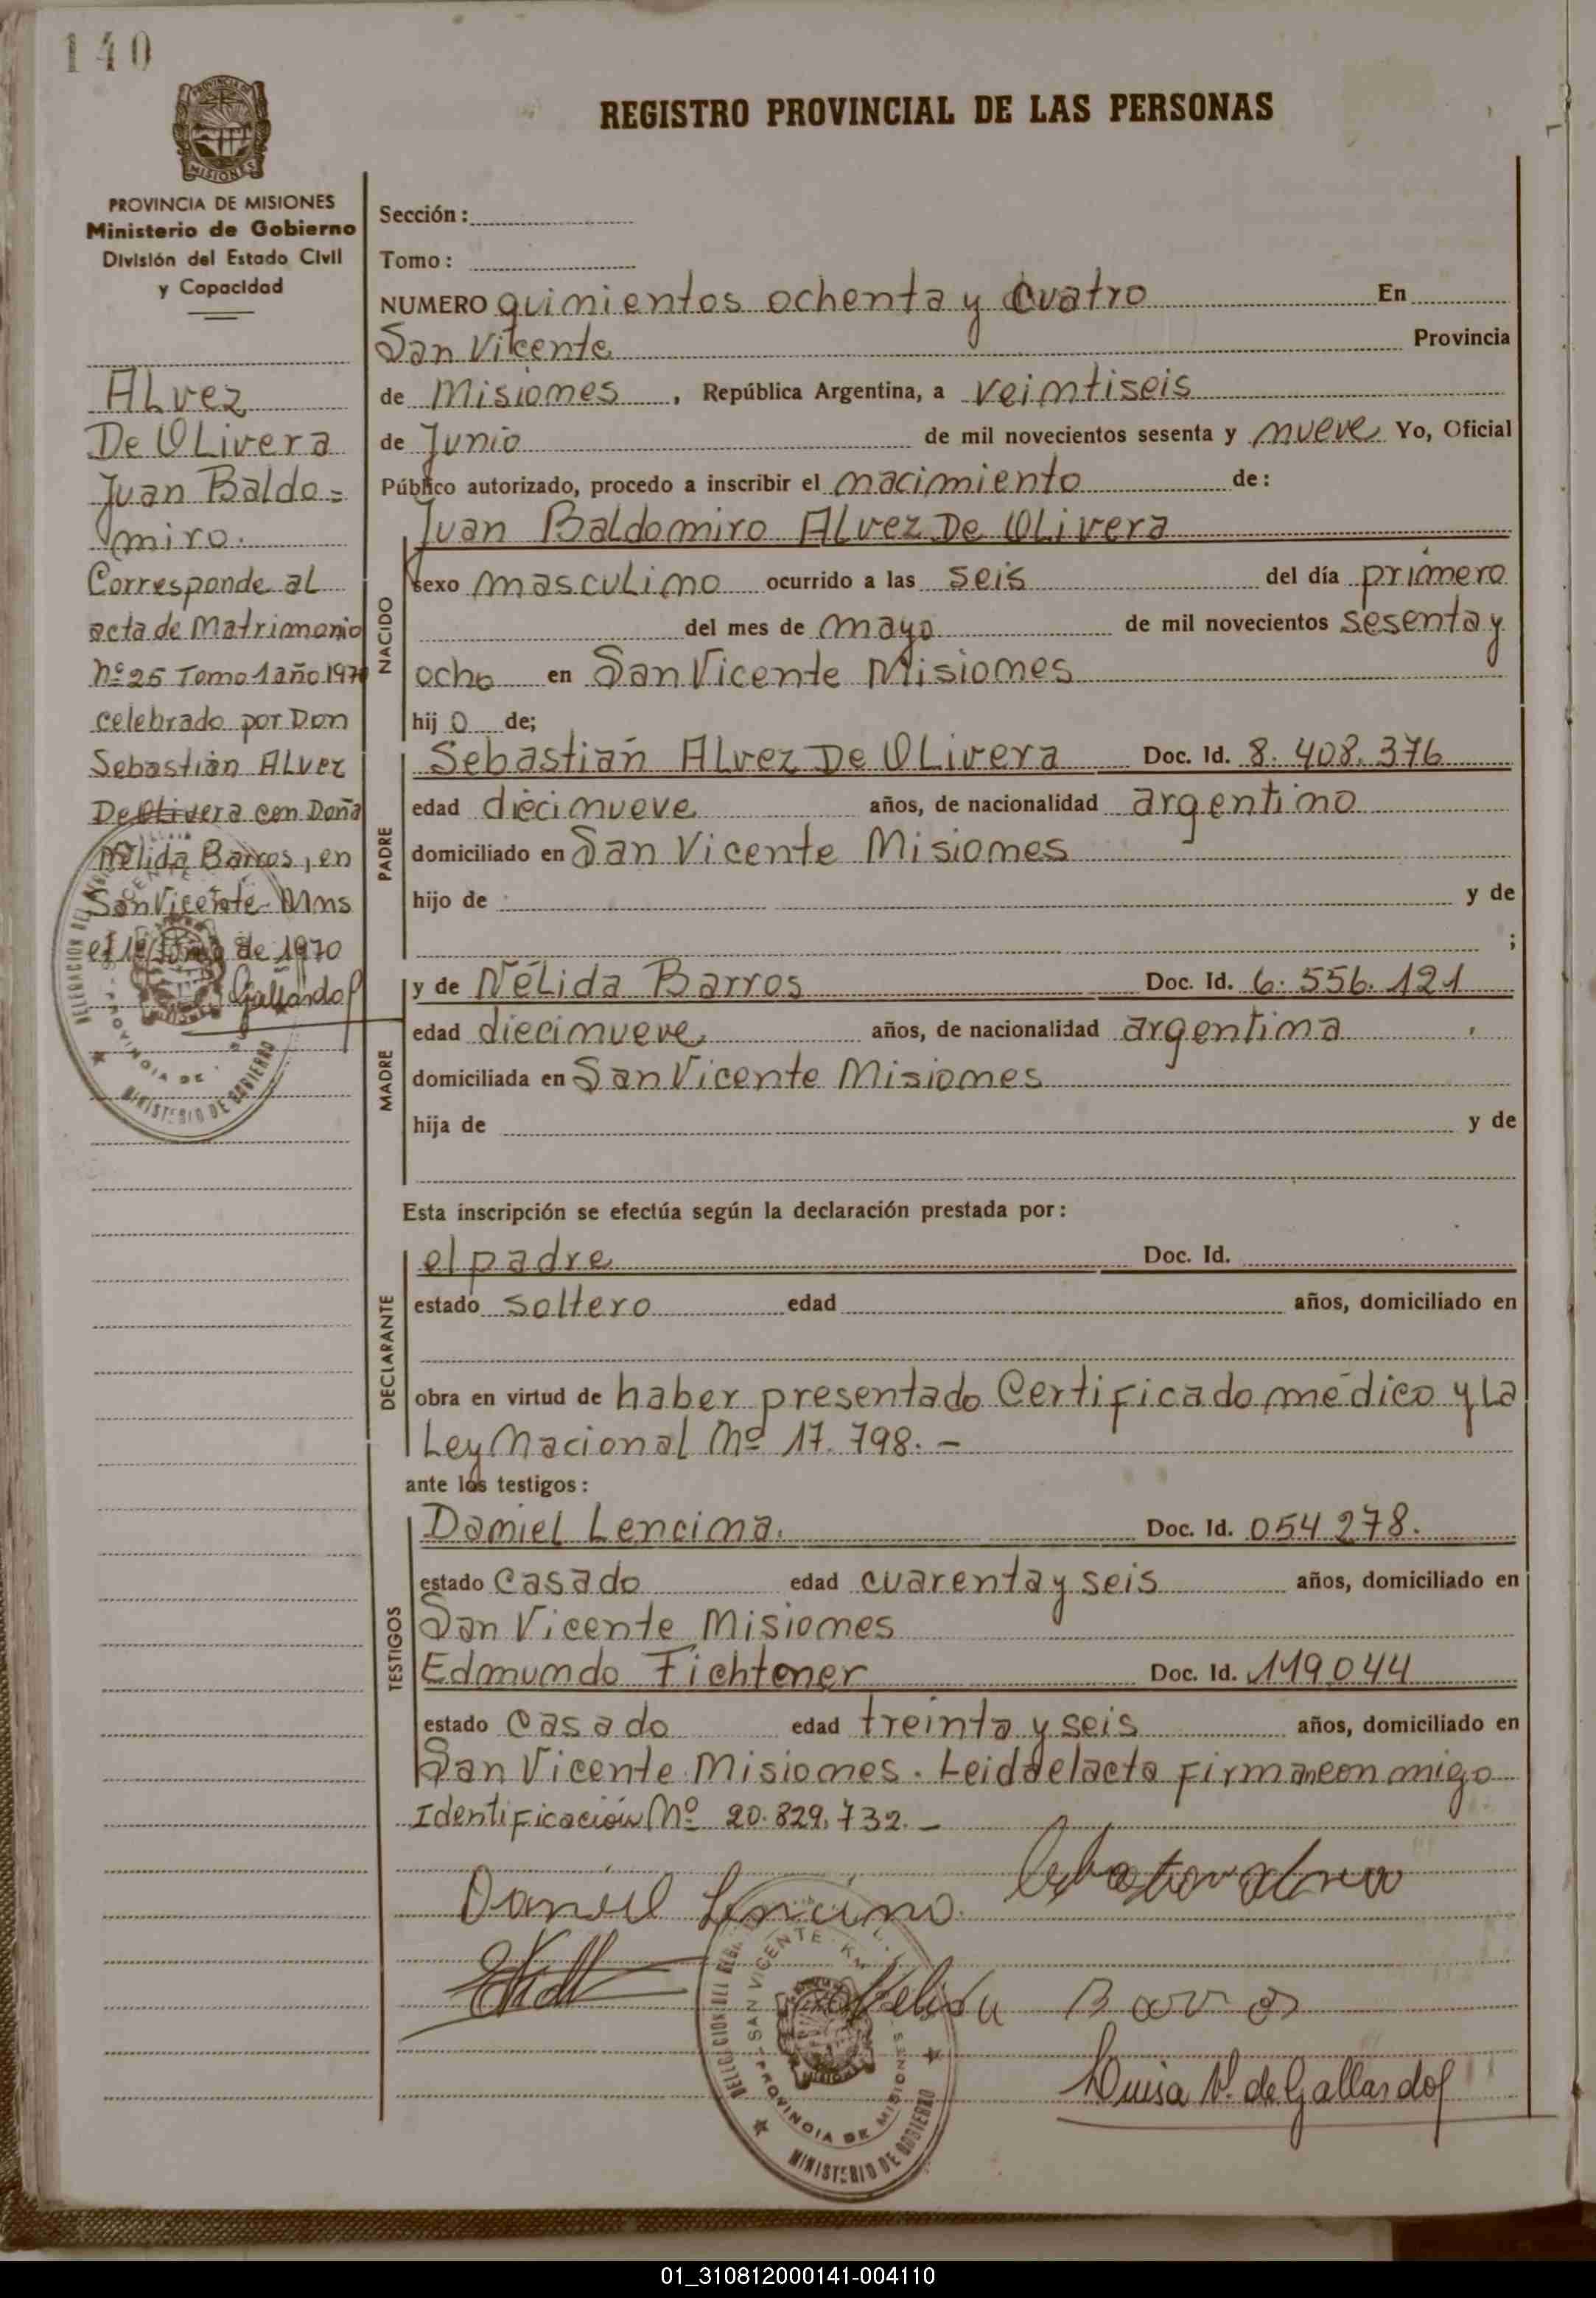 140
PROVINCIA DE MISIONES
Ministerio de Gobierno
División del Estado Civil
y Capacidad
ALvez
De OLivera
Juan Baldo=
miro.
Corresponde al
acta de Matrimonio
Nº 25 Tomo 1 año 1970
celebrado por Don
Sebastián ALvez
De Olivera con Doña
Nélida Barros, en
San Vicente-Mns
de 1970
Gallardo
REGISTRO PROVINCIAL DE LAS PERSONAS
Sección:
Tomo:
NUMERO quinientos ochenta y cuatro En
San Vicente Provincia
de Misiones, República Argentina, a veintiseis
de Junio de mil novecientos sesenta y nueve Yo, Oficial
Público autorizado, procedo a inscribir el nacimiento de:
Juan Baldomiro ALvez De OLivera
NACIDO
sexo masculino ocurrido a las seis del día primero
del mes de mayo de mil novecientos sesenta y
ocho en San Vicente Misiones
hij o de;
PADRE
Sebastián ALvez De OLivera Doc. Id. 8. 408. 376
edad diecinueve años, de nacionalidad argentino
domiciliado en San Vicente Misiones
hijo de y de
;
MADRE
y de Nélida Barros Doc. Id. 6. 556. 121
edad diecinueve años, de nacionalidad argentina
domiciliada en San Vicente Misiones
hija de y de
Esta inscripción se efectúa según la declaración prestada por:
DECLARANTE
el padre Doc. Id.
estado soltero edad años, domiciliado en
obra en virtud de haber presentado Certificado médico y La
Ley Nacional Nº 17. 798. -
ante los testigos:
TESTIGOS
Daniel Lencina. Doc. Id. 054 278.
estado casado edad cuarenta y seis años, domiciliado en
San Vicente Misiones
Edmundo Fichtener Doc. Id. 119.044
estado casado edad treinta y seis años, domiciliado en
San Vicente Misiones. Leida el acta firman con migo
Identificación Nº 20. 829. 732. -
Daniel Lencina
Nelida Barros
Luisa V. de Gallardo
SAN VICENTE
PROVINCIA DE MISIONES
MINISTERIO DE GOBIERNO
01_310812000141-004110